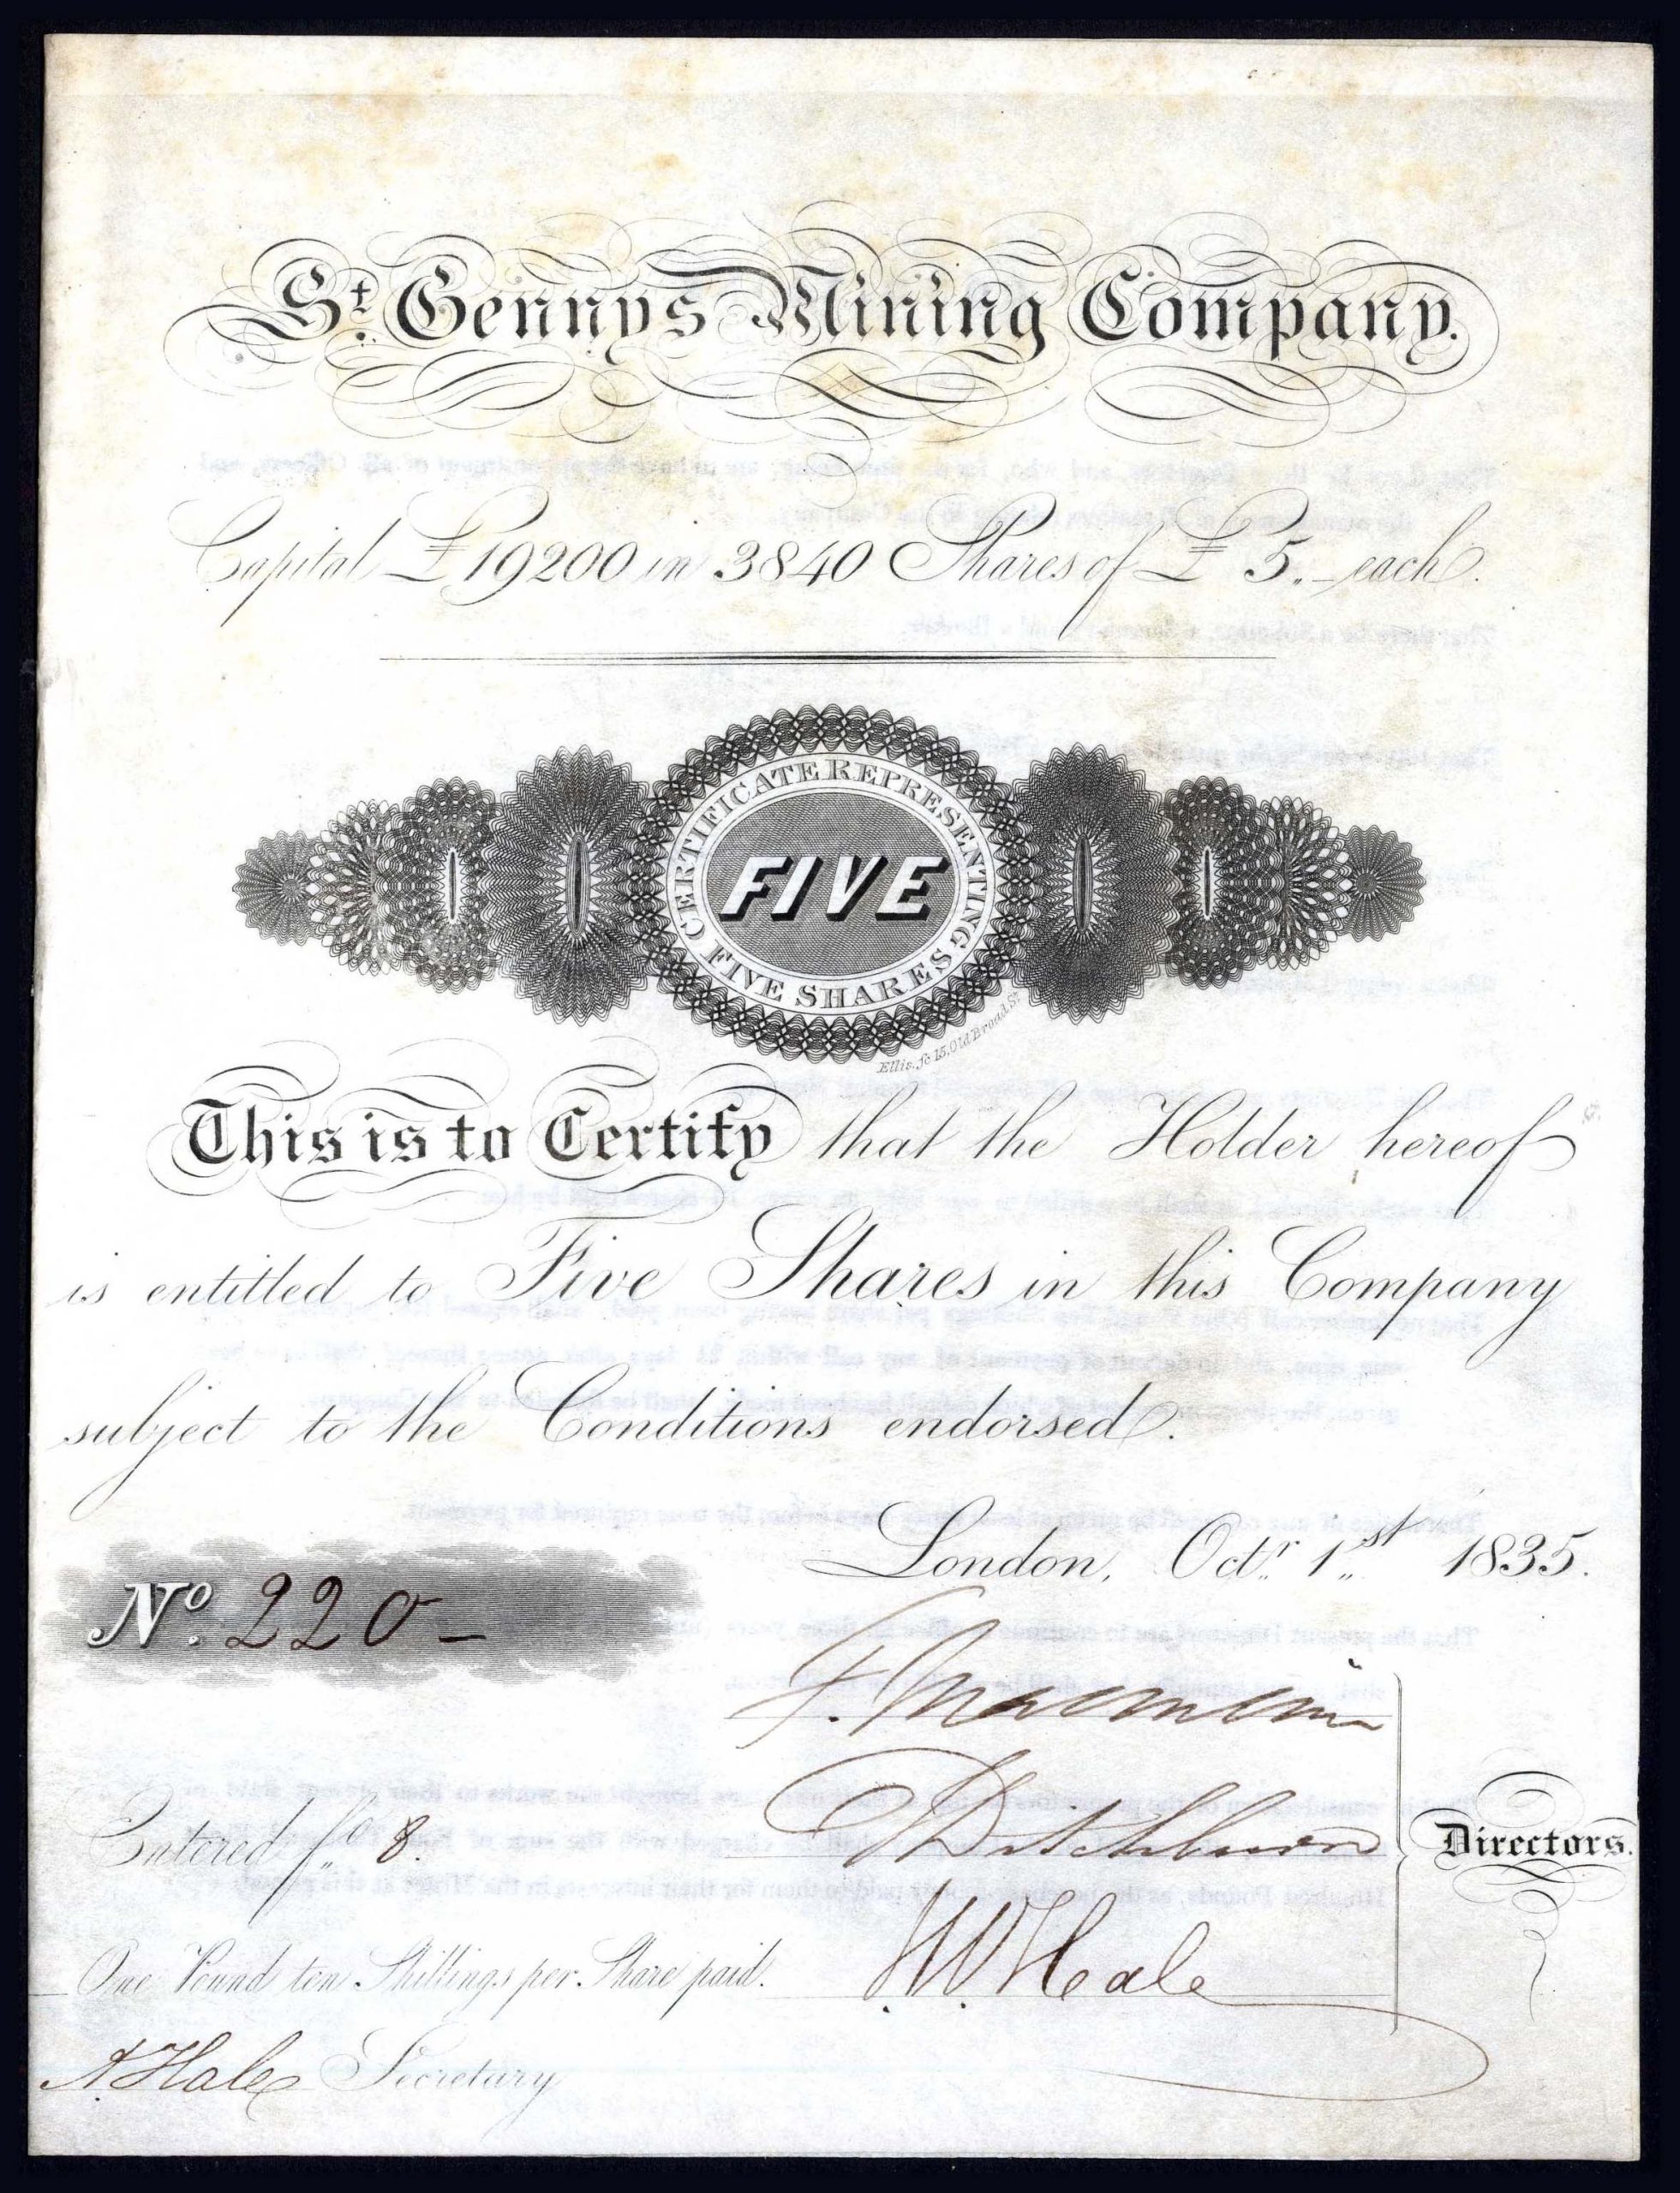 St. Gennys Mining Company.
Capital £19200 in 3840 Shares of £5. each.
CERTIFICATE REPRESENTING
FIVE
FIVE SHARES
Ellis, sc 15, Old Broad St.
This is to Certify that the Holder hereof
is entitled to Five Shares in this Company
subject to the Conditions endorsed.
London, Octr. 1st 1835.
No. 220 -
Ditchburn
Entered fo. 8.
Directors.
W. Hale
One Pound ten Shillings per Share paid.
A Hale Secretary